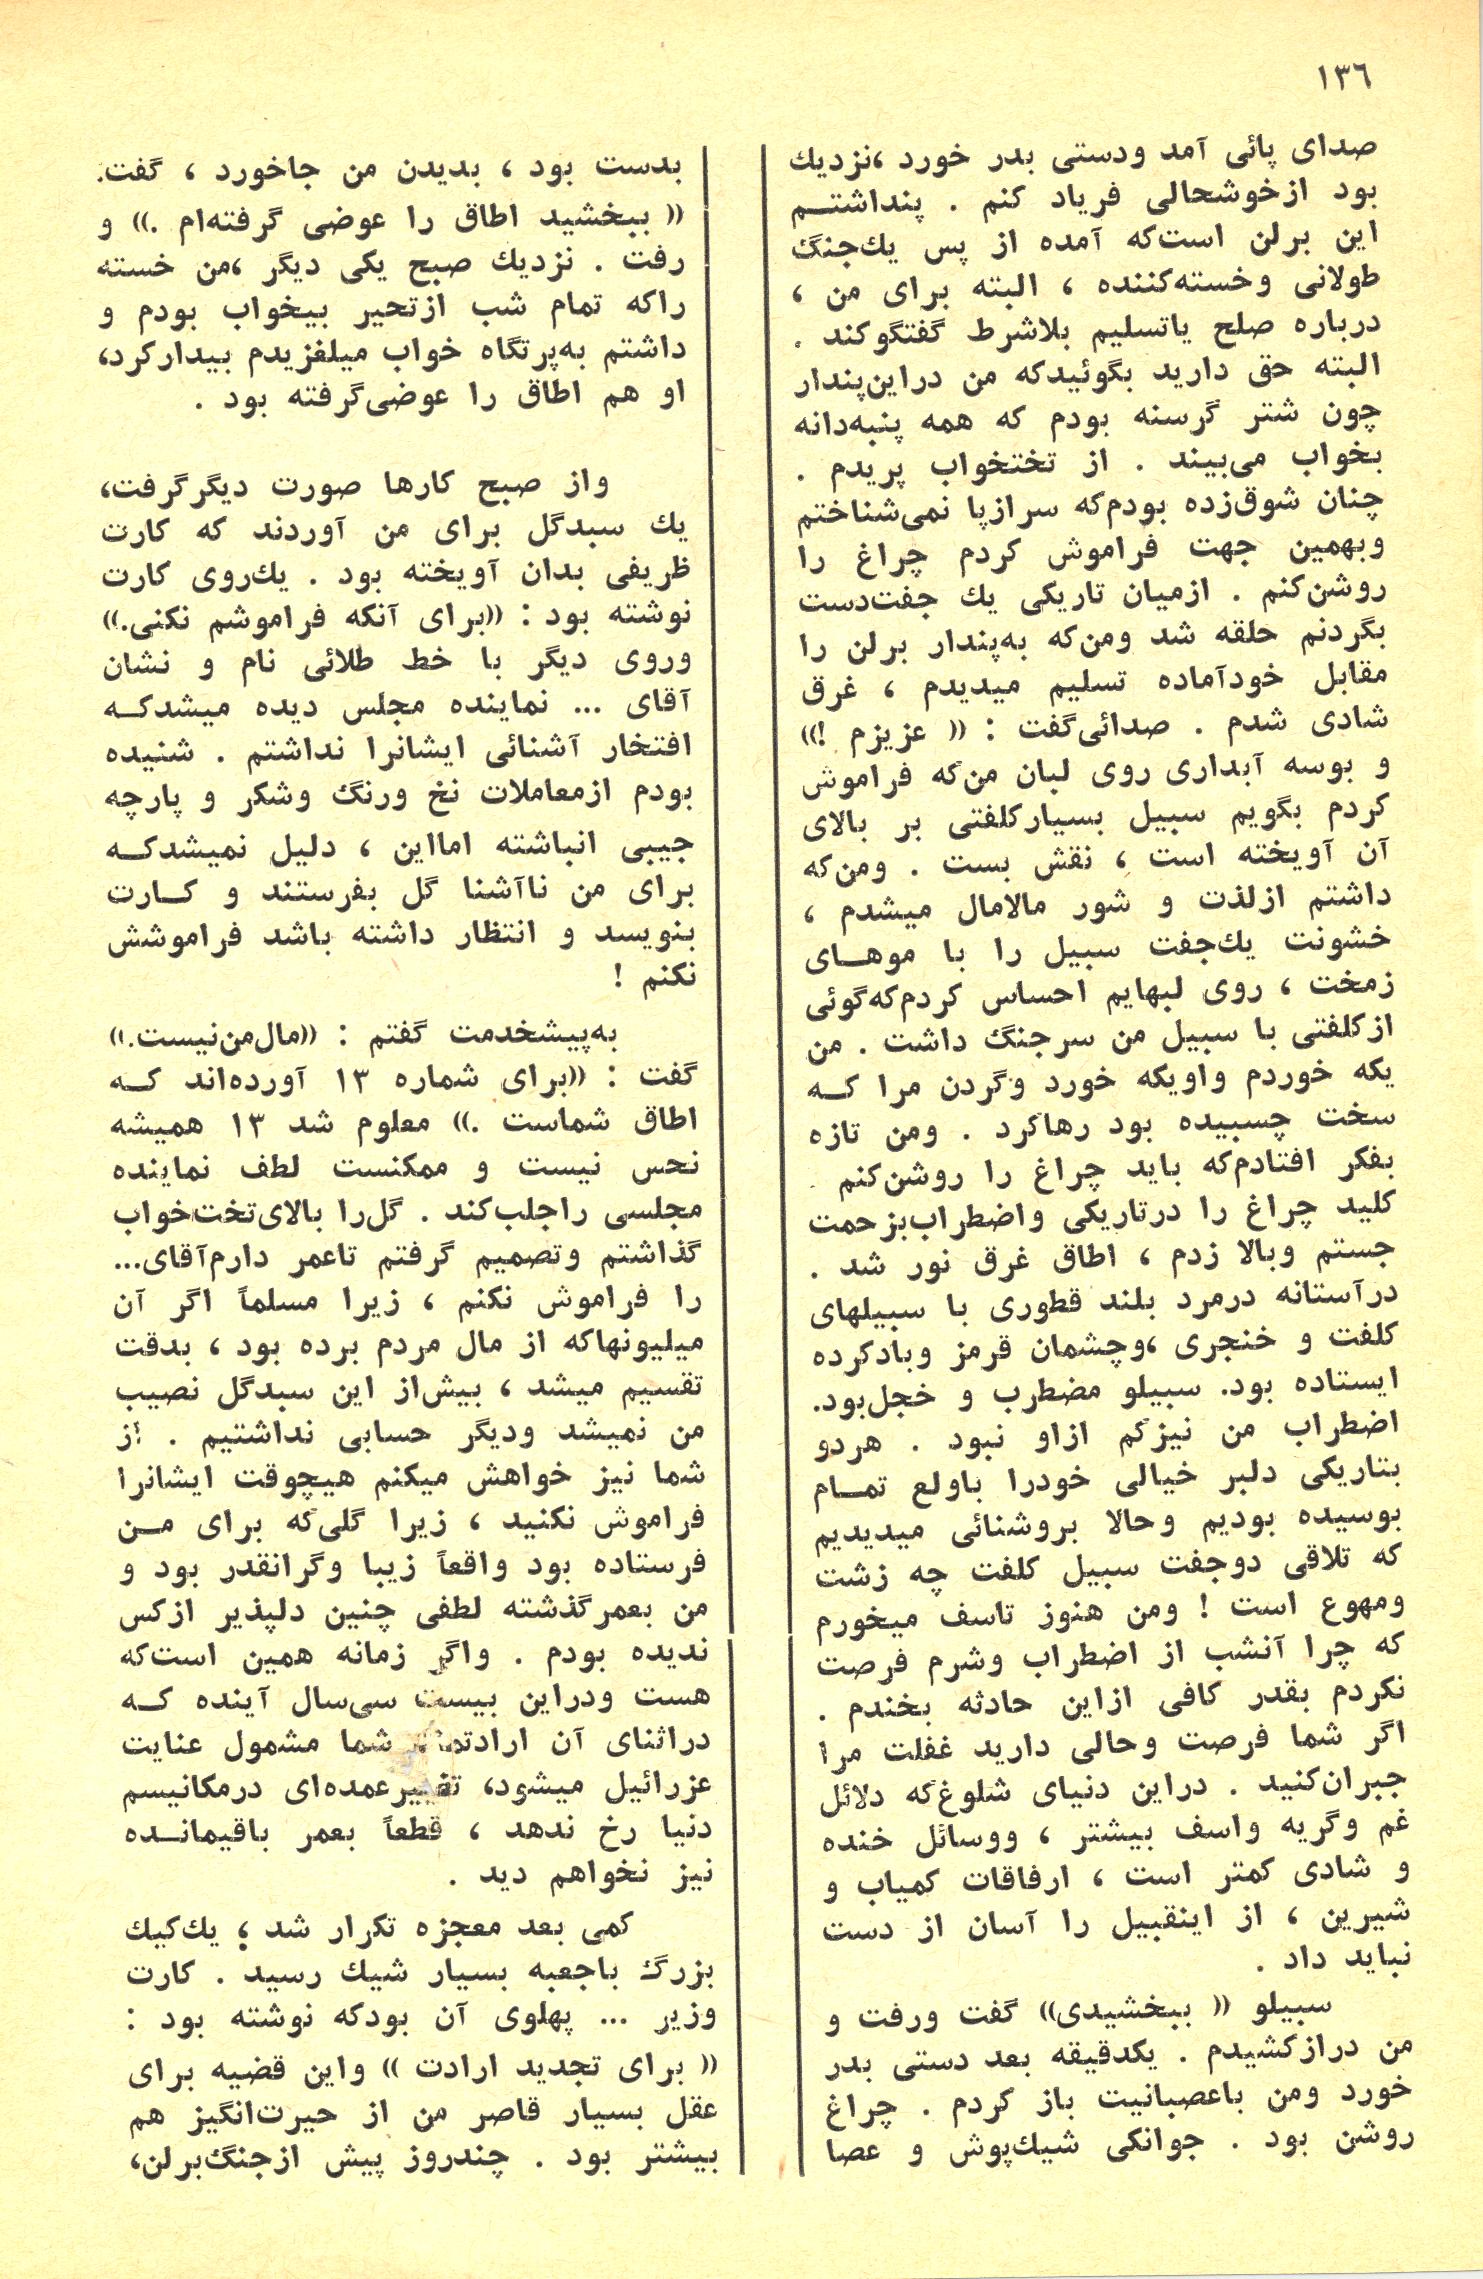 ۱۳۶
صدای پائی آمد ودستی بدر خورد ،نزدیك
بود ازخوشحالی فریاد کنم . پنداشتـم
این برلن است‌که آمده از پس یك‌جنگ
طولانی وخسته‌کننده ، البته برای من ،
درباره صلح یاتسلیم بلاشرط گفتگوکند .
البته حق دارید بگوئیدکه من دراین‌پندار
چون شتر گرسنه بودم که همه پنبه‌دانه
بخواب می‌بیند . از تختخواب پریدم .
چنان شوق‌زده بودم‌که سرازپا نمی‌شناختم
وبهمین جهت فراموش کردم چراغ را
روشن‌کنم . ازمیان تاریکی یك جفت‌دست
بگردنم حلقه شد ومن‌که به‌پندار برلن را
مقابل خودآماده تسلیم میدیدم ، غرق
شادی شدم . صدائی‌گفت : (( عزیزم !))
و بوسه آبداری روی لبان من‌که فراموش
کردم بگویم سبیل بسیارکلفتی بر بالای
آن آویخته است ، نقش بست . ومن‌که
داشتم ازلذت و شور مالامال میشدم ،
خشونت یك‌جفت سبیل را با موهـای
زمخت ، روی لبهایم احساس کردم‌که‌گوئی
ازکلفتی با سبیل من سرجنگ داشت . من
یکه خوردم واویکه خورد وگردن مرا کـه
سخت چسبیده بود رهاکرد . ومن تازه
بفکر افتادم‌که باید چراغ را روشن‌کنم .
کلید چراغ را درتاریکی واضطراب‌بزحمت
جستم وبالا زدم ، اطاق غرق نور شد .
درآستانه درمرد بلند قطوری با سبیلهای
کلفت و خنجری ،وچشمان قرمز وبادکرده
ایستاده بود. سبیلو مضطرب و خجل‌بود.
اضطراب من نیزکم ازاو نبود . هردو
بتاریکی دلبر خیالی خودرا باولع تمـام
بوسیده بودیم وحالا بروشنائی میدیدیم
که تلاقی دوجفت سبیل کلفت چه زشت
ومهوع است ! ومن هنوز تاسف میخورم
که چرا آنشب از اضطراب وشرم فرصت
نکردم بقدر کافی ازاین حادثه بخندم .
اگر شما فرصت وحالی دارید غفلت مرا
جبران‌کنید . دراین دنیای شلوغ‌که دلائل
غم وگریه واسف بیشتر ، ووسائل خنده
و شادی کمتر است ، ارفاقات کمیاب و
شیرین ، از اینقبیل را آسان از دست
نباید داد .
سبیلو (( ببخشیدی)) گفت ورفت و
من درازکشیدم . یکدقیقه بعد دستی بدر
خورد ومن باعصبانیت باز کردم . چراغ
روشن بود . جوانکی شیك‌پوش و عصا
بدست بود ، بدیدن من جاخورد ، گفت.
(( ببخشید اطاق را عوضی گرفته‌ام .)) و
رفت . نزدیك صبح یکی دیگر ،من خسته
راکه تمام شب ازتحیر بیخواب بودم و
داشتم به‌پرتگاه خواب میلغزیدم بیدارکرد،
او هم اطاق را عوضی‌گرفته بود .
واز صبح کارها صورت دیگرگرفت،
یك سبدگل برای من آوردند که کارت
ظریفی بدان آویخته بود . یك‌روی کارت
نوشته بود : ((برای آنکه فراموشم نکنی.))
وروی دیگر با خط طلائی نام و نشان
آقای ... نماینده مجلس دیده میشدکـه
افتخار آشنائی ایشانرا نداشتم . شنیده
بودم ازمعاملات نخ ورنگ وشکر و پارچه
جیبی انباشته امااین ، دلیل نمیشدکـه
برای من ناآشنا گل بفرستند و کـارت
بنویسد و انتظار داشته باشد فراموشش
نکنم !
به‌پیشخدمت گفتم : ((مال‌من‌نیست.))
گفت : ((برای شماره ۱۳ آورده‌اند کـه
اطاق شماست .)) معلوم شد ۱۳ همیشه
نحس نیست و ممکنست لطف نماینده
مجلسی راجلب‌کند . گل‌را بالای‌تخت‌خواب
گذاشتم وتصمیم گرفتم تاعمر دارم‌آقای...
را فراموش نکنم ، زیرا مسلماً اگر آن
میلیونهاکه از مال مردم برده بود ، بدقت
تقسیم میشد ، بیش‌از این سبدگل نصیب
من نمیشد ودیگر حسابی نداشتیم . از
شما نیز خواهش میکنم هیچوقت ایشانرا
فراموش نکنید ، زیرا گلی‌که برای مـن
فرستاده بود واقعاً زیبا وگرانقدر بود و
من بعمرگذشته لطفی چنین دلپذیر ازکس
ندیده بودم . واگر زمانه همین است‌که
هست ودراین بیست سی‌سال آینده کـه
دراثنای آن ارادتمند شما مشمول عنایت
عزرائیل میشود، تغییرعمده‌ای درمکانیسم
دنیا رخ ندهد ، قطعاً بعمر باقیمانـده
نیز نخواهم دید .
کمی بعد معجزه تکرار شد ؛ یك‌کیك
بزرگ باجعبه بسیار شیك رسید . کارت
وزیر ... پهلوی آن بودکه نوشته بود :
(( برای تجدید ارادت )) واین قضیه برای
عقل بسیار قاصر من از حیرت‌انگیز هم
بیشتر بود . چندروز پیش ازجنگ‌برلن،